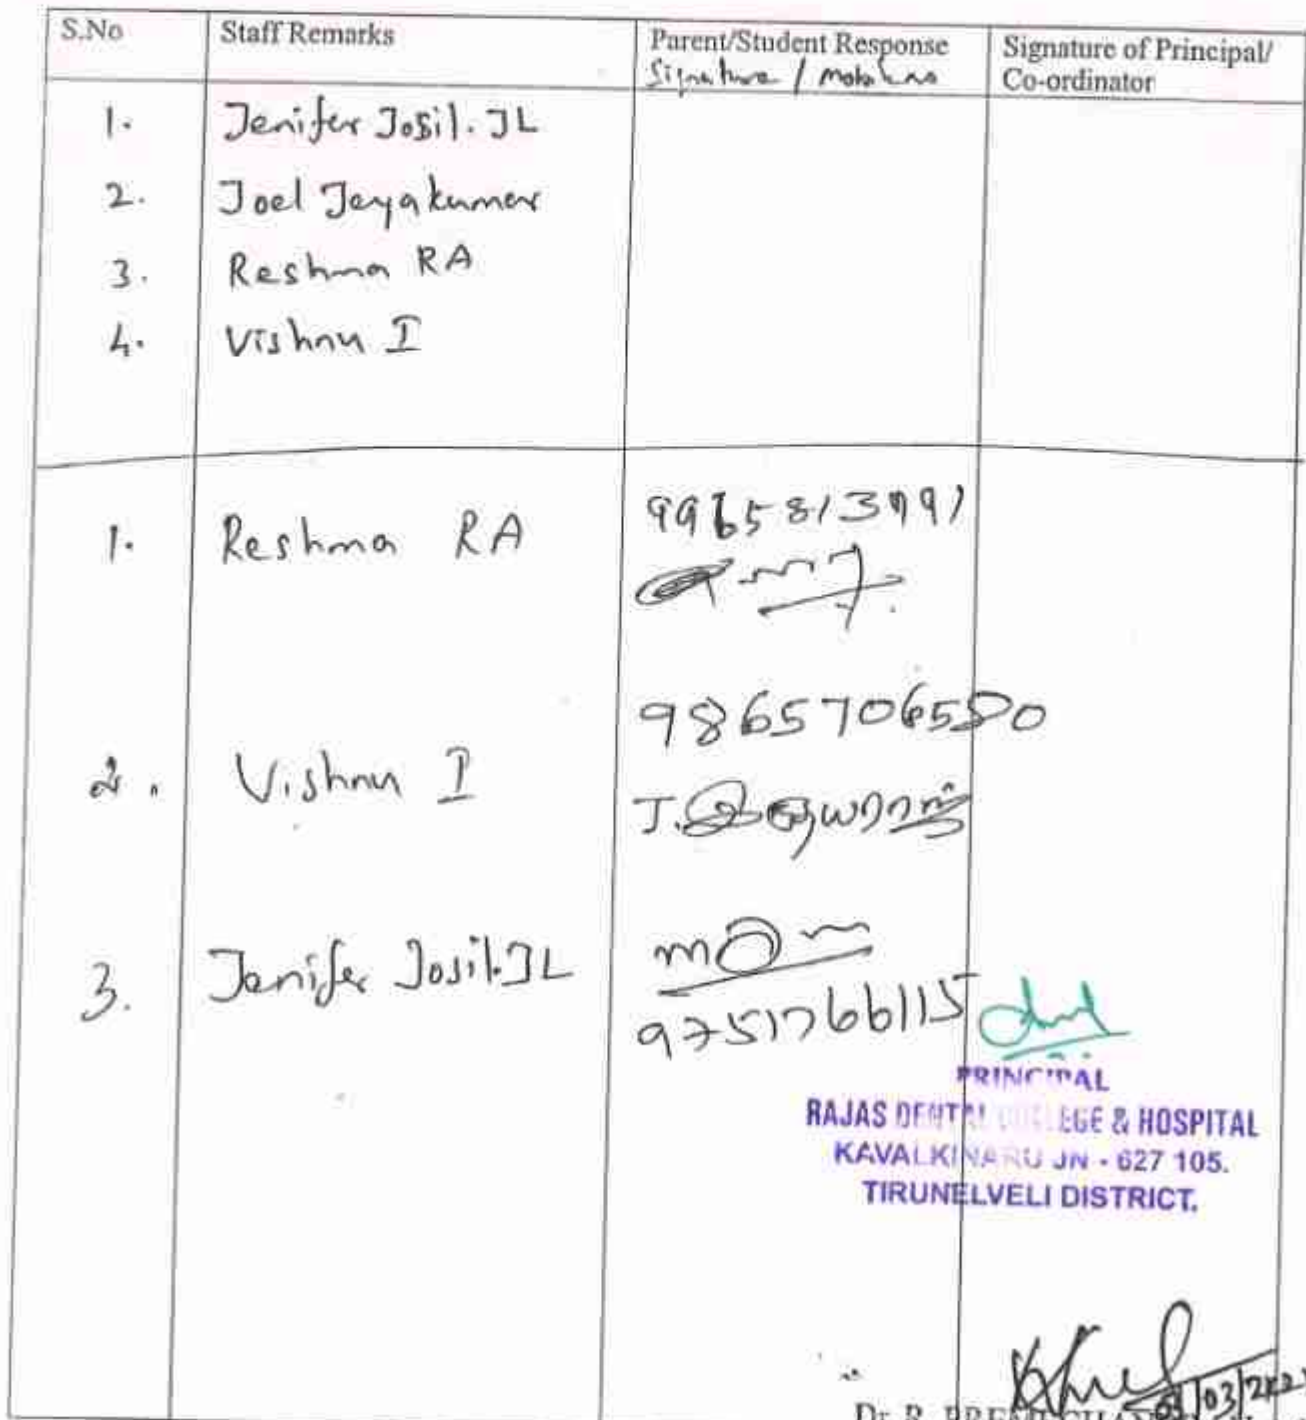 S.No Staff Remarks Parent/Student Response Signature of Principal/
Signature / Co-ordinator
1. Jenifer Josil. JL
2. Joel Jeyakumar
3. Reshma RA
4. Vishnu I
1. Reshma RA
9865706580
2. Vishnu I
J. இருதயராஜ்
3. Jenifer Josil. JL
9751766115
PRINCIPAL
RAJAS DENTAL COLLEGE & HOSPITAL
KAVALKINARU JN - 627 105.
TIRUNELVELI DISTRICT.
Dr. R.